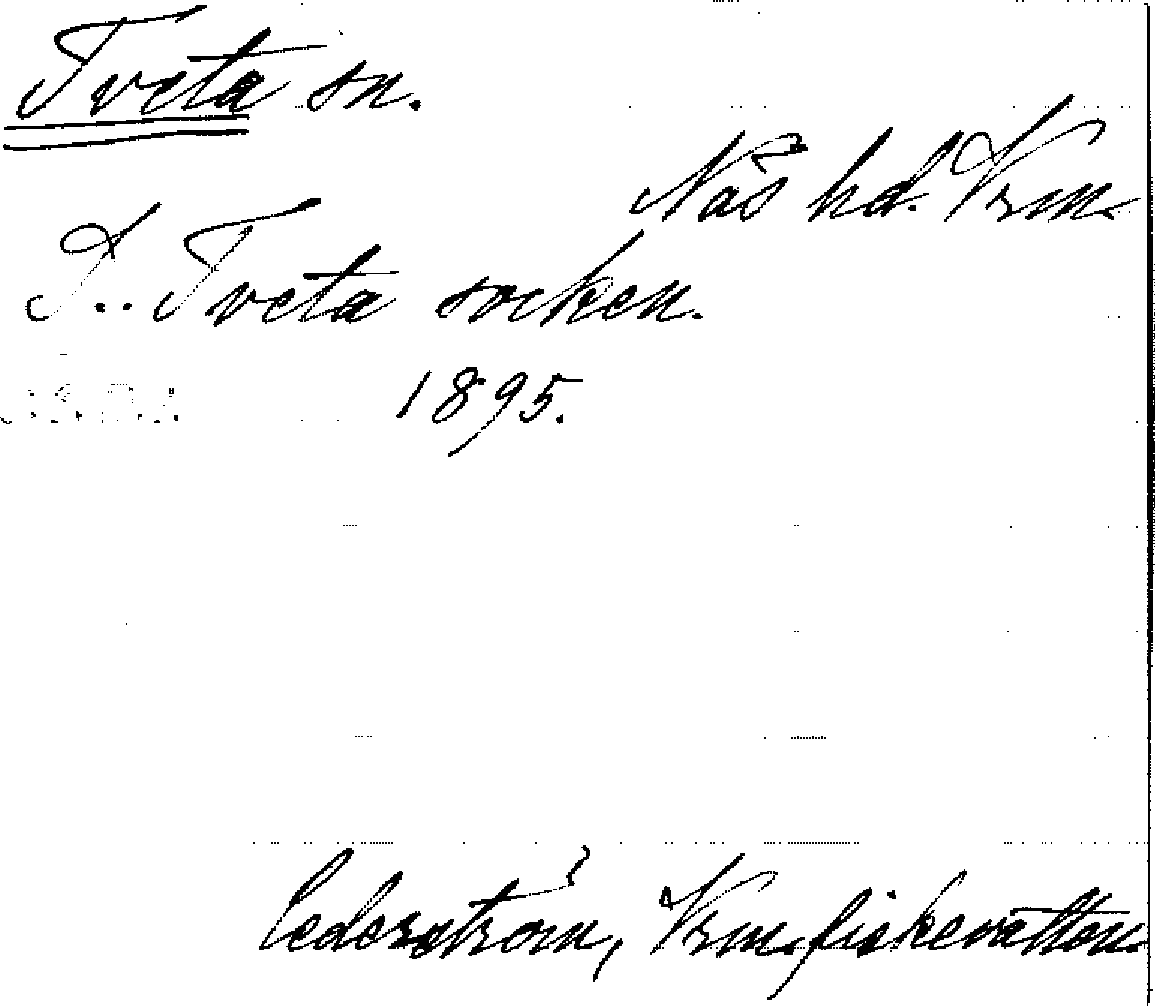 Tveta sn.
Näs hd. Vrm.
I.. Tveta socken.
1895.
Cederström, Vrm. fiskevatten.